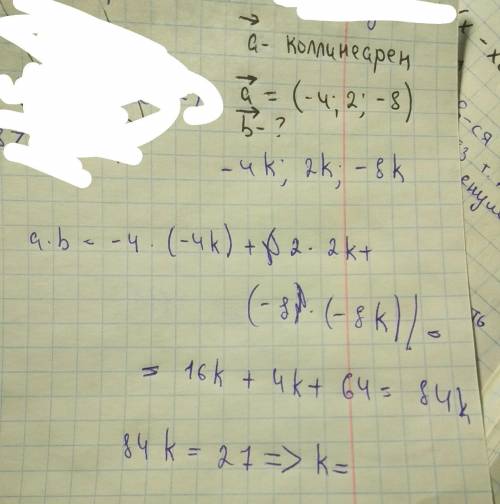 a - коллинеарен
a = (-4; 2; -8)
b - ?
-4k; 2k; -8k
a·b = -4 · (-4k) + 2 · 2k +
(-8) · (-8k) =
= 16k + 4k + 64 = 84k
84k = 27 => k =